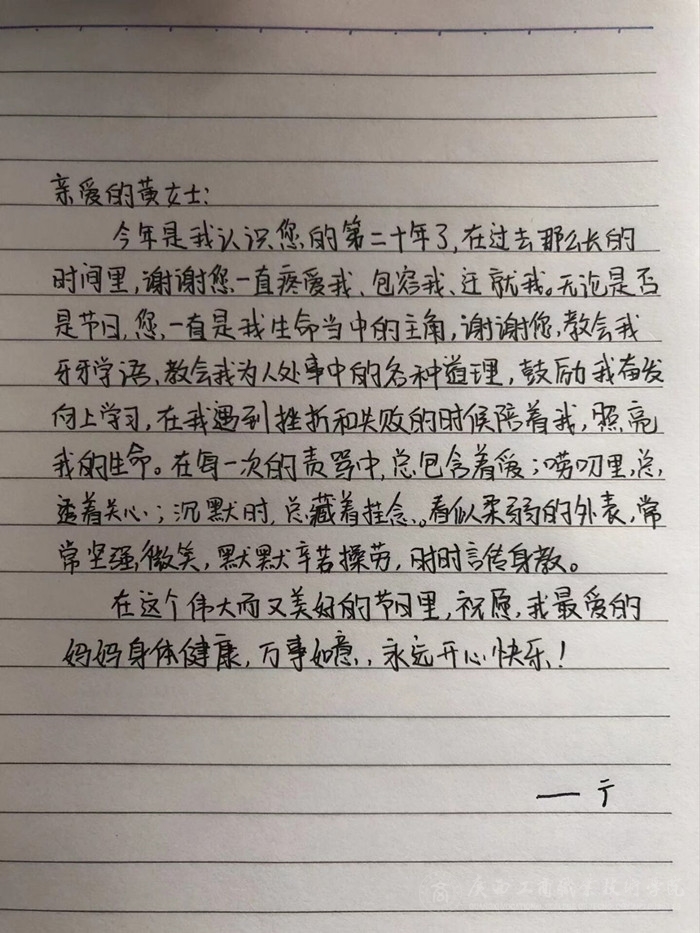 亲爱的黄女士:
今年是我认识您的第二十年了,在过去那么长的
时间里,谢谢您一直疼爱我、包容我、迁就我。无论是否
是节日,您,一直是我生命当中的主角,谢谢您,教会我
牙牙学语、教会我为人处事中的各种道理,鼓励我奋发
向上学习,在我遇到挫折和失败的时候陪着我,照亮
我的生命。在每一次的责骂中,总包含着爱;唠叨里,总
透着关心;沉默时,总藏着挂念、。看似柔弱的外表,常
常坚强微笑,默默辛苦操劳,时时言传身教。
在这个伟大而又美好的节日里,祝愿,我最爱的
妈妈身体健康,万事如意,永远开心快乐!
——亍
广西工商职业技术学院